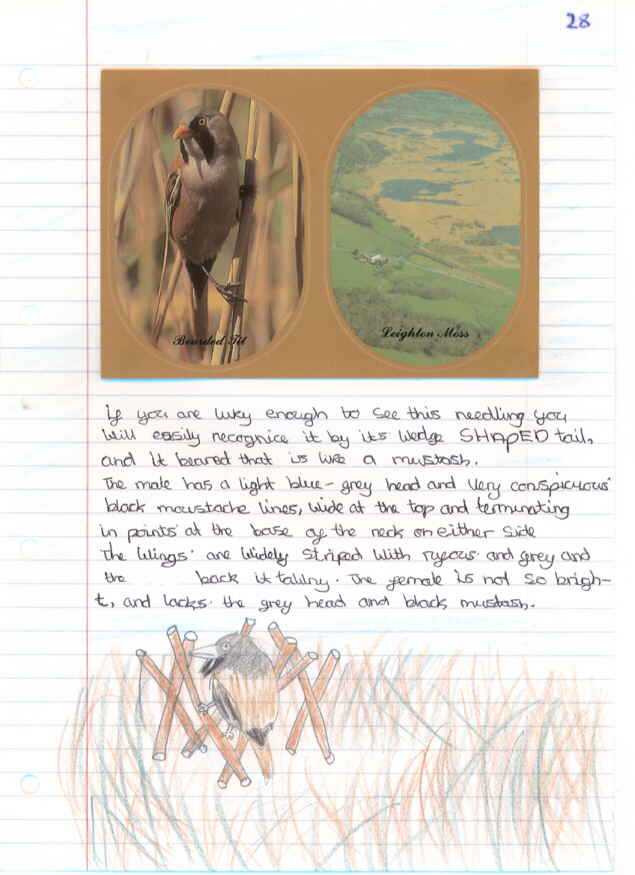 28
Bearded Tit
Leighton Moss
if you are luky enough to see this needling you
will easily recognice it by its wedge SHAPED tail,
and it beared that is like a mustosh.
The male has a light blue-grey head and very conspicious
black moustache lines, wide at the top and terminating
in points at the base of the neck on either side
The wings are widely striped with ryfous and grey and
the back it tawny. The female is not so brigh-
t, and lacks the grey head and black mustash.